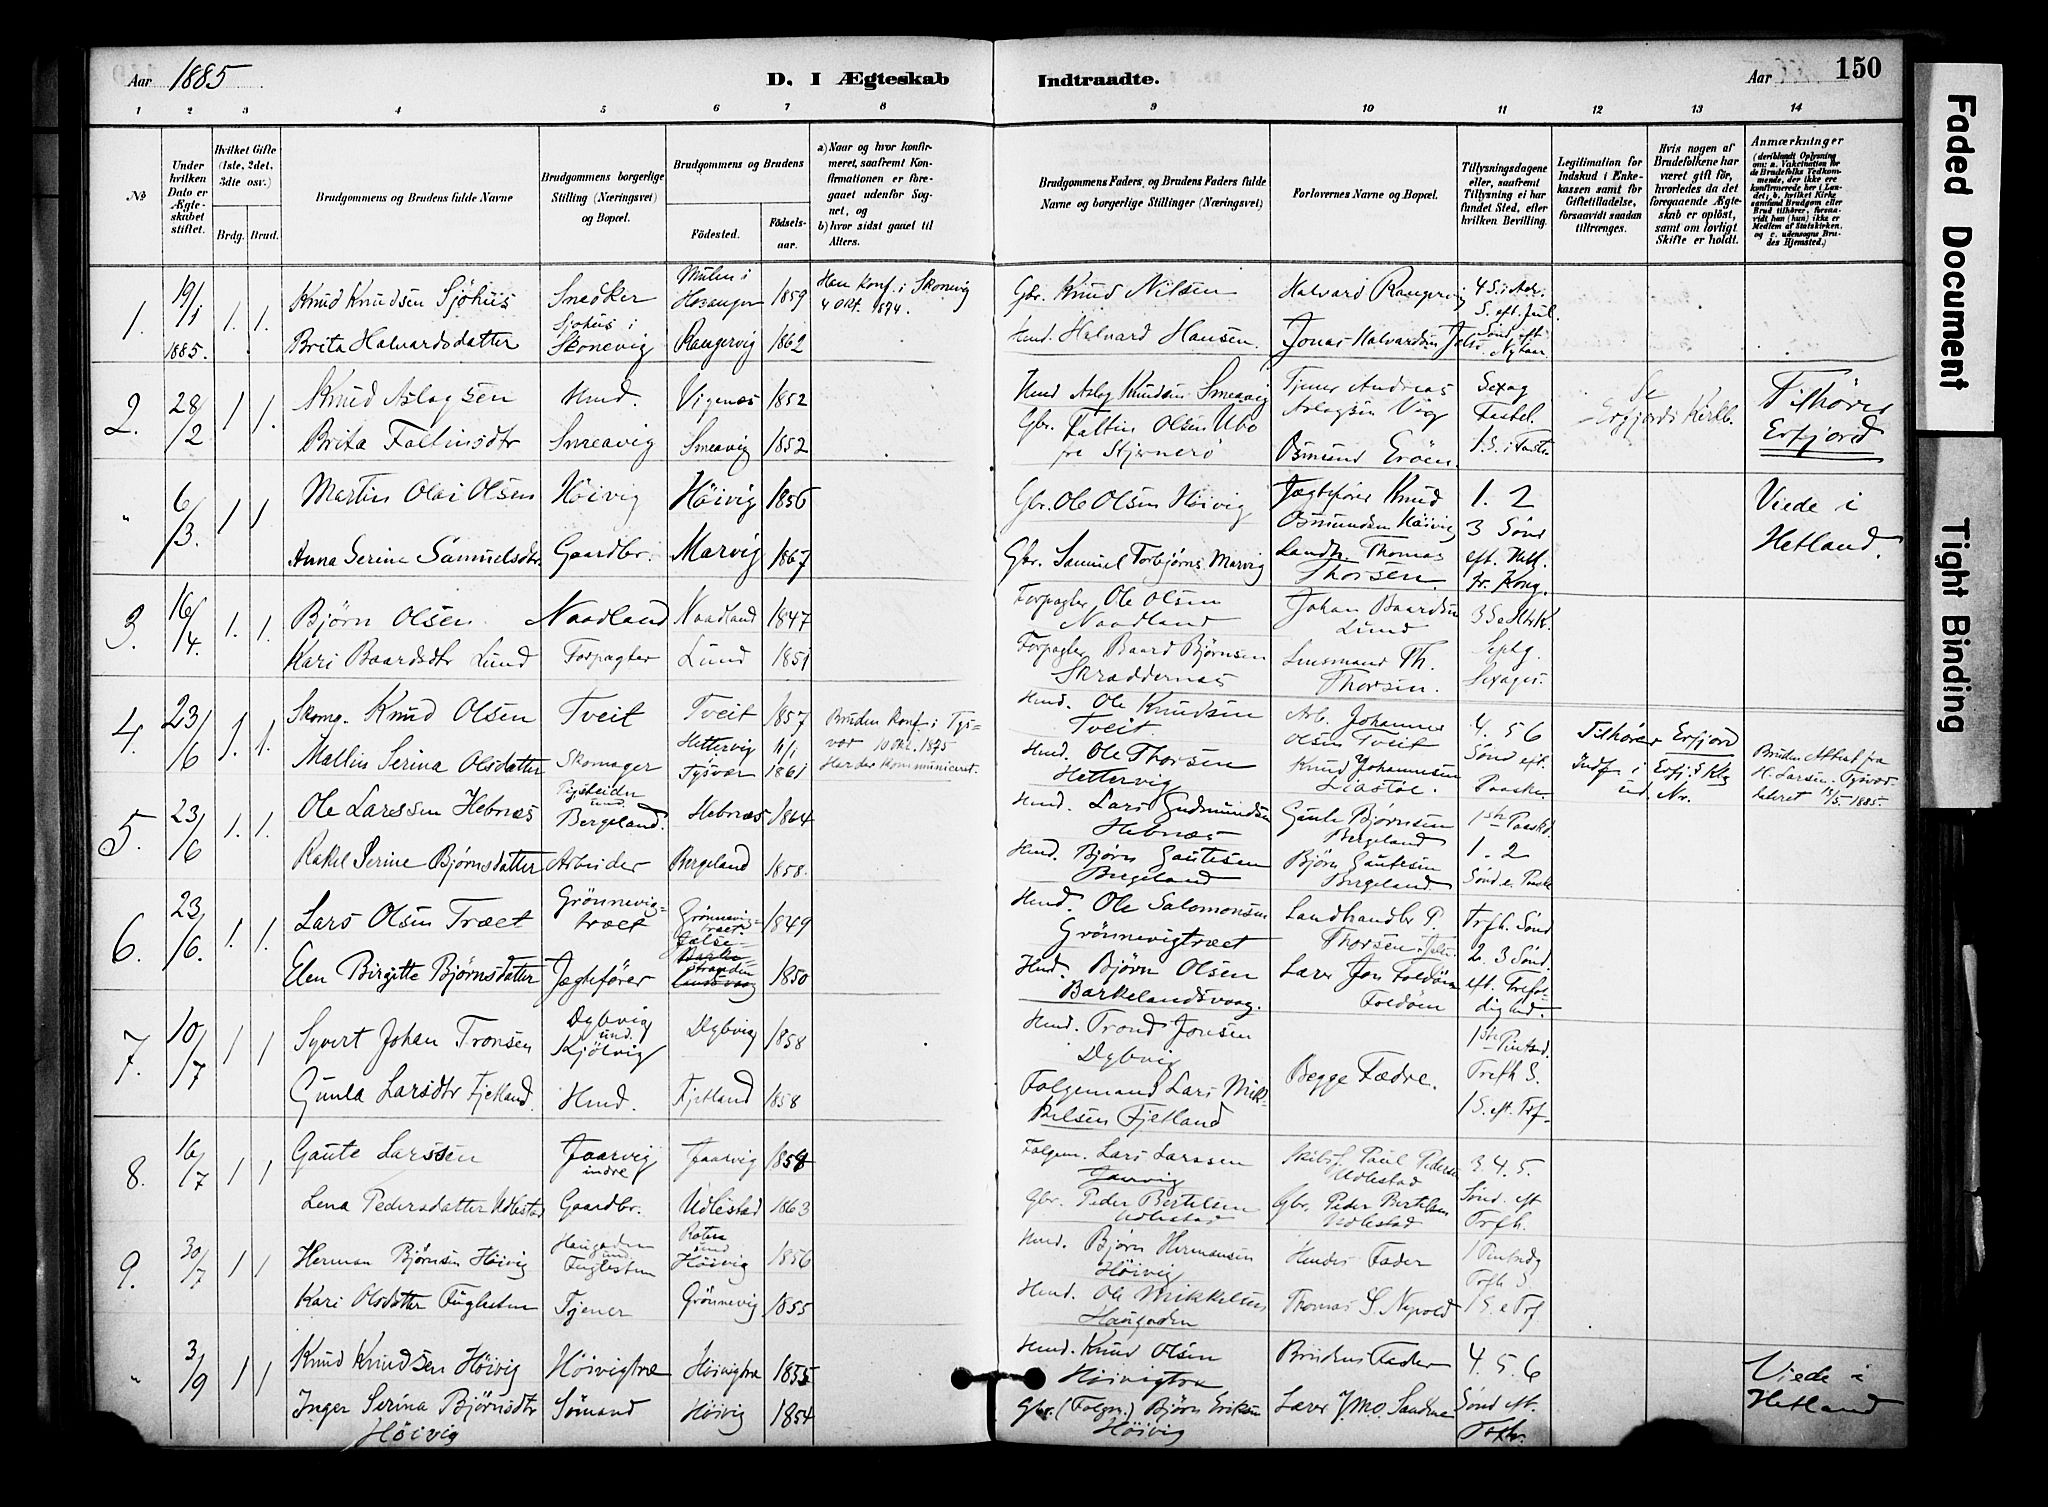 Aar 1885
D. I Ægteskab Indtraadte.
Aar 150
1 2 3 4 5 6 7 8 9 10 11 12 13 14
No
Under hvilken Dato er Ægteskabet stiftet.
Hvilket Gifte (1ste, 2det, 3die osv.)
Brdg. Brud.
Brudgommens og Brudens fulde Navne
Brudgommens borgerlige Stilling (Næringsvei) og Bopæl.
Brudgommens og Brudens
Fødested. Fødselsaar.
a) Naar og hvor konfirmeret, saafremt Konfirmationen er foregaaet udenfor Sognet, og
b) hvor sidst gaaet til Alters.
Brudgommens Faders, og Brudens Faders fulde Navne og borgerlige Stillinger (Næringsvei)
Forlovernes Navne og Bopæl.
Tillysningsdagene eller, saafremt Tillysning ei har fundet Sted, efter hvilken Bevilling.
Legitimation for Indskud i Enkekassen samt for Giftetilladelse, forsaavidt saadan tiltrænges.
Hvis nogen af Brudefolkene har været gift før, hvorledes da det foregaaende Ægteskab er opløst, samt om lovligt Skifte er holdt.
Anmærkninger
(deriblandt Oplysning om: a. Vakcination for de Brudefolks Vedkommende, der ikke ere konfirmerede her i Landet; b. hvilket Kirkesamfund Brudgom eller Brud tilhører, forsaavidt han (hun) ikke er Medlem af Statskirken, og c. udensogns Brudes Hjemsted.)
1. 19/1 1885. 1. 1. Knud Knudsen Sjøhus Snedker Sjøhus i Skonevig Mulen i Hosanger 1859 Han Konf. i Skonevig 4 Okt. 1874. Gbr. Knud Nilsen Halvard Rangervig 4 S. i Adv. S. eft. Jul.
Brita Halvardsdatter Rangervig 1862 Hmd. Halvard Hansen. Jonas Halvardsen Jelse Sønd. eft. Nytaar
2. 28/2 1 1. Knud Aslagsen Hmd. Vigenæs 1852 Hmd Aslag Knudsen Smeavig Tjener Andreas Aslagsen Vaag Sexag Fastel. Se Erfjords Kirkb. Tilhører Erfjord
Brita Faltinsdtr Smeavig Smeavig 1852 Gbr. Faltin Olsen Ubø fra Hjernerø Osmund Erøen. 1. S. i Faste
" 6/3. 1 1 Martin Olai Olsen Høivig Høivig 1856 Gbr. Ole Olsen Høivig Jægtefører Knud Osmundsen Høivig 1. 2 3 Sønd Viede i Hetland.
Anna Serine Samuelsdtr. Gaardbr. Marvig 1867 Gbr. Samuel Torbjørns. Marvig Landh. Thomas Thorsen. eft. Hell. tr. Kong.
3. 16/4. 1. 1. Bjørn Olsen. Naadland Naadland 1847 Forpagter Ole Olsen Naadland Johan Baardsen Lund
Kari Baardsdtr Lund Forpagter Lund 1851 Forpagter Baard Bjørnsen Skraddernæs Lensmand Th. Thorsen. Septg. Sexages.
4. 23/6 1. 1. Skomg. Knud Olsen Tveit Tveit 1857 Bruden Konf. i Tysvær 10 Okt. 1875 Har der kommuniceret. Hmd. Ole Knudsen Tveit. Arb. Johannes Olsen Tveit 4. 5 6 Sønd eft. Paaske. Tilhører Erfjord Indf. i Erfj.s Kbg u. Nr. Bruden Attest fra H. Larsen Tysvær dateret 13/5 1885.
Mallin Serina Olsdatter Skomager Hettervig Tysvær 11/1 1861 Hmd. Ole Thorsen Hettervig Knud Johannesen Libstøl.
5. 23/6 1. 1. Ole Larssen Hebnæs Bergeland. Hebnæs 1864 Hmd. Lars Gudmundsen Hebnæs Gaute Bjørnsen Bergeland 1ste Paaskd
Rakel Serine Bjørnsdatter Arbeider Bergeland 1858. Hmd. Bjørn Gautesen Bergeland Bjørn Gautesen Bergeland. 1. 2 Sønd e. Paaske
6. 23/6. 1. 1. Lars Olsen Træet Grønnevigtræet Grønnevigtræet Jelse 1849 Hmd. Ole Salomonsen Grønnevigtræet Landhandler P. Thorsen Jelse Trfh. Sønd 2. 3 Sønd.
Elen Birgitte Bjørnsdatter Jægtefører 1850 Hmd. Bjørn Olsen Barkelandsvaag. Lærer Jon Foldøen Foldøen eft. Trefoldighed.
7. 10/7 1 1 Syvert Johan Tronsen Dybvig und. Kjølvig Dybvig 1858 Hmd. Trond Jonsen Dybvig Begge Fædre. 1ste Pintsd. Trefh S.
Gunla Larsdtr Fjetland. Hmd. Fjetland 1858 Folgemand Lars Mikkelsen Fjetland 1 S. eft. Trf.
8. 16/7 1 1 Gaute Larssen Jaarvig indre Jaarvig 1859 Folgem. Lars Larssen Jaarvig Skibsf. Paul Pedersen Udlestad 3. 4. 5. Sønd. eft Trfh.
Lena Pedersdatter Udlestad Gaardbr. Udlestad 1863 Gbr. Peder Bertelsen Udlestad Gbr. Peder Bertelsen Udlestad
9. 30/7 1 1 Herman Bjørnsen Høivig Haugaden und. Fuglesten und Høivig 1856 Hmd. Bjørn Hermansen Høivig Hendes Fader 1 Pintsdg Trfh S.
Kari Olsdatter Fuglesten Tjener Grønnevig 1855 Hmd. Ole Mikkelsen Haugaden Thomas S. Nypold 1 S. e Trf
" 3/9 1 1 Knud Knudsen Høivig Høivigtræ Høivigtræ 1855 Hmd. Knud Olsen Høivigtræ Brudens Fader 4. 5. 6 Viede i Hetland
Inger Serina Bjørnsdtr Høivig Sømand Høivig 1854 Gbr. (Folgm.) Bjørn Eriksen Høivig Lærer J. M. O. Sandvæ Sønd eft. Trfh.
Faded Document
Tight Binding